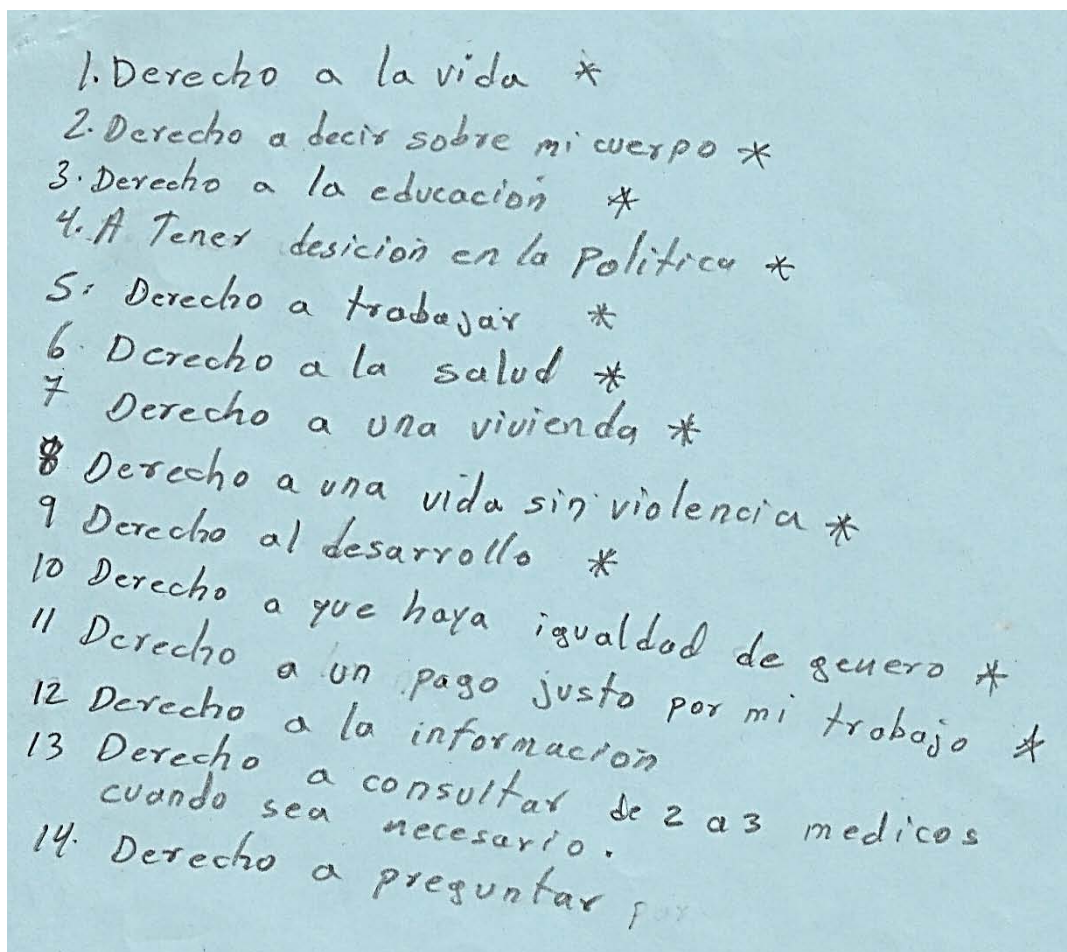 1. Derecho a la vida *
2. Derecho a decir sobre mi cuerpo *
3. Derecho a la educación *
4. A Tener desición en la Politica *
5: Derecho a trabajar *
6. Derecho a la salud *
7 Derecho a una vivienda *
8 Derecho a una vida sin violencia *
9 Derecho al desarrollo *
10 Derecho a que haya igualdad de genero *
11 Derecho a un pago justo por mi trabajo *
12 Derecho a la información
13 Derecho a consultar de 2 a 3 medicos
cuando sea necesario.
14. Derecho a preguntar por